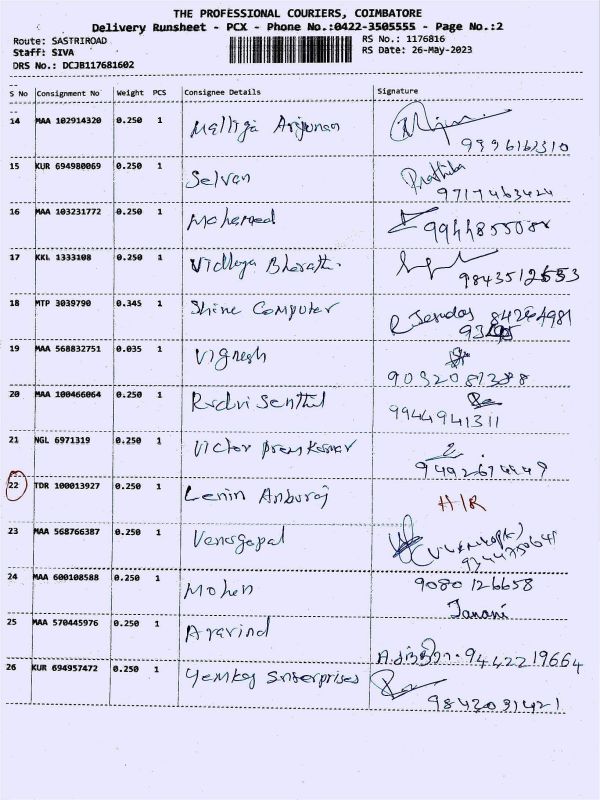 THE PROFESSIONAL COURIERS, COIMBATORE
Delivery Runsheet - PCX - Phone No.:0422-3505555 - Page No.:2
Route: SASTRIROAD RS No.: 1176816
Staff: SIVA RS Date: 26-May-2023
DRS No.: DCJB117681602
S No Consignment No Weight PCS Consignee Details Signature
14 MAA 102914320 0.250 1 Malliga Arjunan
15 KUR 694980069 0.250 1 Selvan Prathiba
9717463424
16 MAA 103231772 0.250 1 Mohamed
17 KKL 1333108 0.250 1 Vidhya Bharathi.
18 MTP 3039790 0.345 1 Shine Computer
19 MAA 568832751 0.035 1 Vignesh
20 MAA 100466064 0.250 1 Senthil
9944941311
21 NGL 6971319 0.250 1 Victor Prem Kumar
22 TDR 100013927 0.250 1 Lenin Anburaj
23 MAA 568766387 0.250 1 Venogopal
24 MAA 600108588 0.250 1 Mohen 9080126658
Janani
25 MAA 570445976 0.250 1 Aravind
9442219664
26 KUR 694957472 0.250 1 Yemkey Enterprises
9842031421